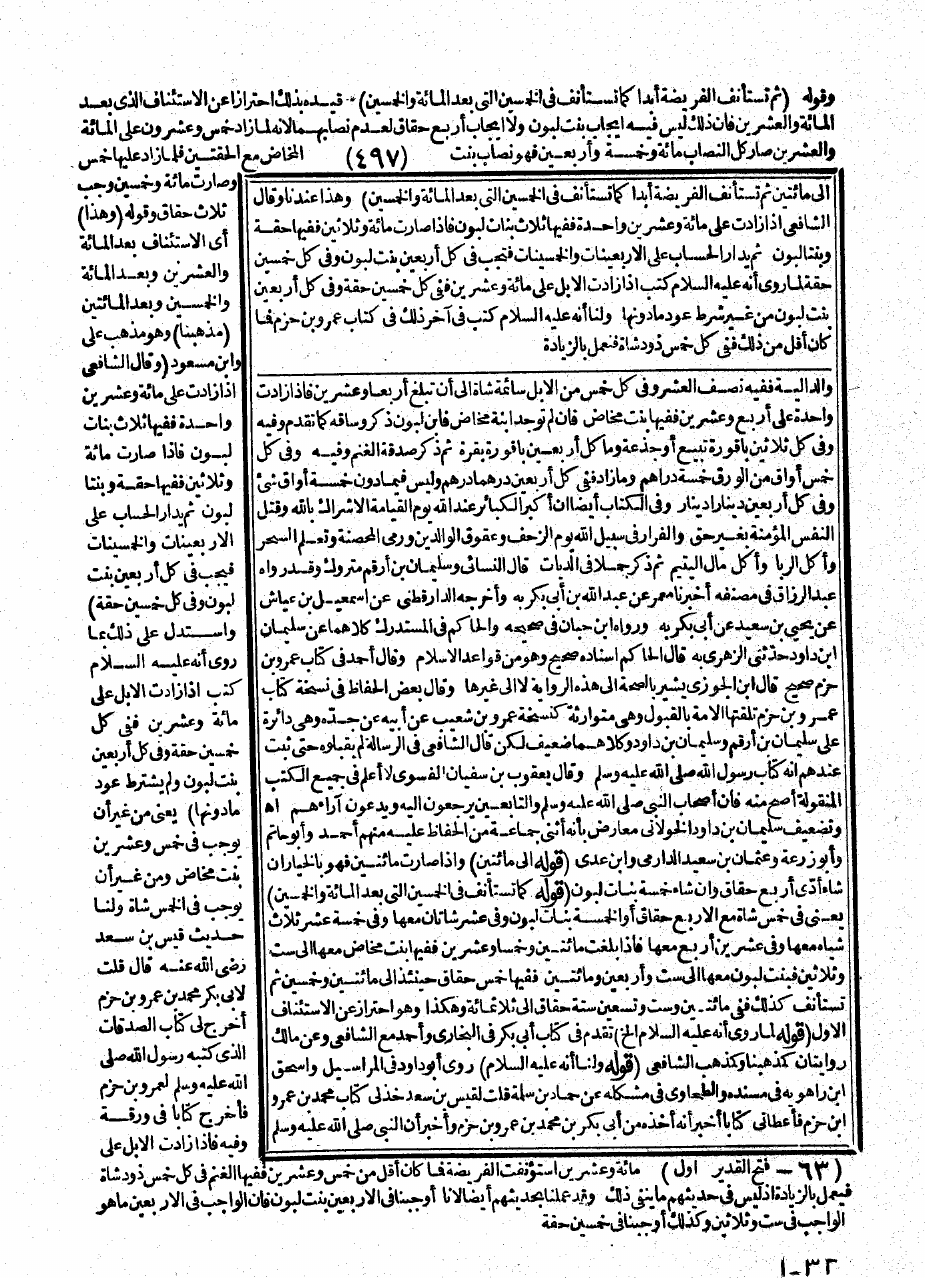 وقوله (ثم تستأنف الفريضة أبدا كما تستأنف فى الخمسين التى بعد المائة والخمسين) قيده بذلك احترازا عن الاستئناف الذى بعد
المائة والعشرين فان ذلك ليس فيه ايجاب بنت لبون ولا ايجاب أربع حقاق لعدم نصابهما لانه لما زاد خمس وعشرون على المائة
والعشرين صار كل النصاب مائة وخمسة وأربعين فهو نصاب بنت (٤٩٧) المخاض مع الحقتين فلما زاد عليها خمس
وصارت مائة وخمسين وجب
ثلاث حقاق وقوله (وهذا)
أى الاستئناف بعد المائة
والعشرين وبعد المائة
والخمسين وبعد المائتين
(مذهبنا) وهو مذهب على
وابن مسعود (وقال الشافعى
اذا زادت على مائة وعشرين
واحدة ففيها ثلاث بنات
لبون فاذا صارت مائة
وثلاثين ففيها حقة وبنتا
لبون ثم يدار الحساب على
الاربعينات والخمسينات
فيجب فى كل أربعين بنت
لبون وفى كل خمسين حقة)
واستدل على ذلك بما
روى أنه عليه السلام
كتب اذا زادت الابل على
مائة وعشرين ففى كل
خمسين حقة وفى كل أربعين
بنت لبون ولم يشترط عود
ما دونها) يعنى من غير أن
يوجب فى خمس وعشرين
بنت مخاض ومن غير أن
يوجب فى الخمس شاة ولنا
حديث قيس بن سعد
رضى الله عنه قال قلت
لابى بكر محمد بن عمرو بن حزم
أخرج لى كتاب الصدقات
الذى كتبه رسول الله صلى
الله عليه وسلم لعمرو بن حزم
فأخرج كتابا فى ورقة
وفيه فاذا زادت الابل على
الى مائتين ثم تستأنف الفريضة أبدا كما تستأنف فى الخمسين التى بعد المائة والخمسين) وهذا عندنا وقال
الشافعى اذا زادت على مائة وعشرين واحدة ففيها ثلاث بنات لبون فاذا صارت مائة وثلاثين ففيها حقة
وبنتا لبون ثم يدار الحساب على الاربعينات والخمسينات فتجب فى كل أربعين بنت لبون وفى كل خمسين
حقة لما روى أنه عليه السلام كتب اذا زادت الابل على مائة وعشرين ففى كل خمسين حقة وفى كل أربعين
بنت لبون من غير شرط عود ما دونها ولنا أنه عليه السلام كتب فى آخر ذلك فى كتاب عمرو بن حزم فما
كان أقل من ذلك ففى كل خمس ذود شاة فنعمل بالزيادة
والدالية ففيه نصف العشر وفى كل خمس من الابل سائمة شاة الى أن تبلغ أربعا وعشرين فاذا زادت
واحدة على أربع وعشرين ففيها بنت مخاض فان لم توجد ابنة مخاض فابن لبون ذكر وساقه كما تقدم وفيه
وفى كل ثلاثين باقورة تبيع أو جذعة وما كل أربعين باقورة بقرة ثم ذكر صدقة الغنم وفيه وفى كل
خمس أواق من الورق خمسة دراهم وما زاد ففى كل أربعين درهما درهم وليس فيما دون خمسة أواق شئ
وفى كل أربعين دينارا دينار وفى الكتاب أيضا ان أكبر الكبائر عند الله يوم القيامة الاشراك بالله وقتل
النفس المؤمنة بغير حق والفرار فى سبيل الله يوم الزحف وعقوق الوالدين ورمى المحصنة وتعلم السحر
وأكل الربا وأكل مال اليتيم ثم ذكر جملا فى الديات قال النسائى وسليمان بن أرقم متروك وقد رواه
عبد الرزاق فى مصنفه أخبرنا معمر عن عبد الله بن أبى بكر به وأخرجه الدارقطنى عن اسمعيل بن عياش
عن يحيى بن سعيد عن أبى بكر به ورواه ابن حبان فى صحيحه والحاكم فى المستدرك كلاهما عن سليمان
ابن داود حدثنى الزهرى به قال الحاكم اسناده صحيح وهو من قواعد الاسلام وقال أحمد فى كتاب عمرو بن
حزم صحيح قال ابن الجوزى يشير بالصحة الى هذه الرواية لا الى غيرها وقال بعض الحفاظ فى نسخة كتاب
عمرو بن حزم تلقتها الامة بالقبول وهى متوارثة كنسخة عمرو بن شعيب عن أبيه عن جده وهى دائرة
على سليمان بن أرقم وسليمان بن داود وكلاهما ضعيف لكن قال الشافعى فى الرسالة لم يقبلوه حتى ثبت
عندهم انه كتاب رسول الله صلى الله عليه وسلم وقال يعقوب بن سفيان الفسوى لا أعلم فى جميع الكتب
المنقولة أصح منه فان أصحاب النبى صلى الله عليه وسلم والتابعين يرجعون اليه ويدعون آراءهم اه
وتضعيف سليمان بن داود الخولانى معارض بأنه أثنى جماعة من الحفاظ عليه منهم أحمد وأبو حاتم
وأبو زرعة وعثمان بن سعيد الدارمى وابن عدى (قوله الى مائتين) واذا صارت مائتين فهو بالخيار ان
شاء أدى أربع حقاق وان شاء خمسة بنات لبون (قوله كما تستأنف فى الخمسين التى بعد المائة والخمسين)
يعنى فى خمس شاة مع الاربع حقاق أو الخمسة بنات لبون وفى عشر شاتان معها وفى خمسة عشر ثلاث
شياه معها وفى عشرين أربع معها فاذا بلغت مائتين وخمسا وعشرين ففيها بنت مخاض معها الى ست
وثلاثين فبنت لبون معها الى ست وأربعين ومائتين ففيها خمس حقاق حينئذ الى مائتين وخمسين ثم
تستأنف كذلك ففى مائتين وست وتسعين ستة حقاق الى ثلاثمائة وهكذا وهو احتراز عن الاستئناف
الاول (قوله لما روى أنه عليه السلام الخ) تقدم فى كتاب أبى بكر فى البخارى وأحمد مع الشافعى وعن مالك
روايتان كمذهبنا وكمذهب الشافعى (قوله ولنا أنه عليه السلام) روى أبو داود فى المراسيل واسحق
ابن راهويه فى مسنده والطحاوى فى مشكله عن حماد بن سلمة قلت لقيس بن سعد خذ لى كتاب محمد بن عمرو
ابن حزم فأعطانى كتابا أخبر أنه أخذه من أبى بكر بن محمد بن عمرو بن حزم وأخبر أن النبى صلى الله عليه وسلم
(٦٣ – فتح القدير اول) مائة وعشرين استؤنفت الفريضة فما كان أقل من خمس وعشرين ففيها الغنم فى كل خمس ذود شاة
فيعمل بالزيادة اذ ليس فى حديثهم ما ينفى ذلك وقد عملنا بحديثهم أيضا لانا أوجبنا فى الاربعين بنت لبون فان الواجب فى الاربعين ما هو
الواجب فى ست وثلاثين وكذلك أوجبنا فى خمسين حقة
١-٣٢